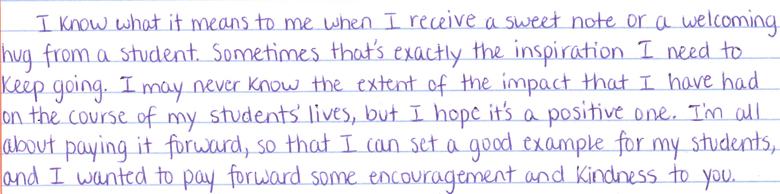 I know what it means to me when I receive a sweet note or a welcoming
hug from a student. Sometimes that's exactly the inspiration I need to
keep going. I may never know the extent of the impact that I have had
on the course of my students' lives, but I hope it's a positive one. I'm all
about paying it forward, so that I can set a good example for my students,
and I wanted to pay forward some encouragement and kindness to you.